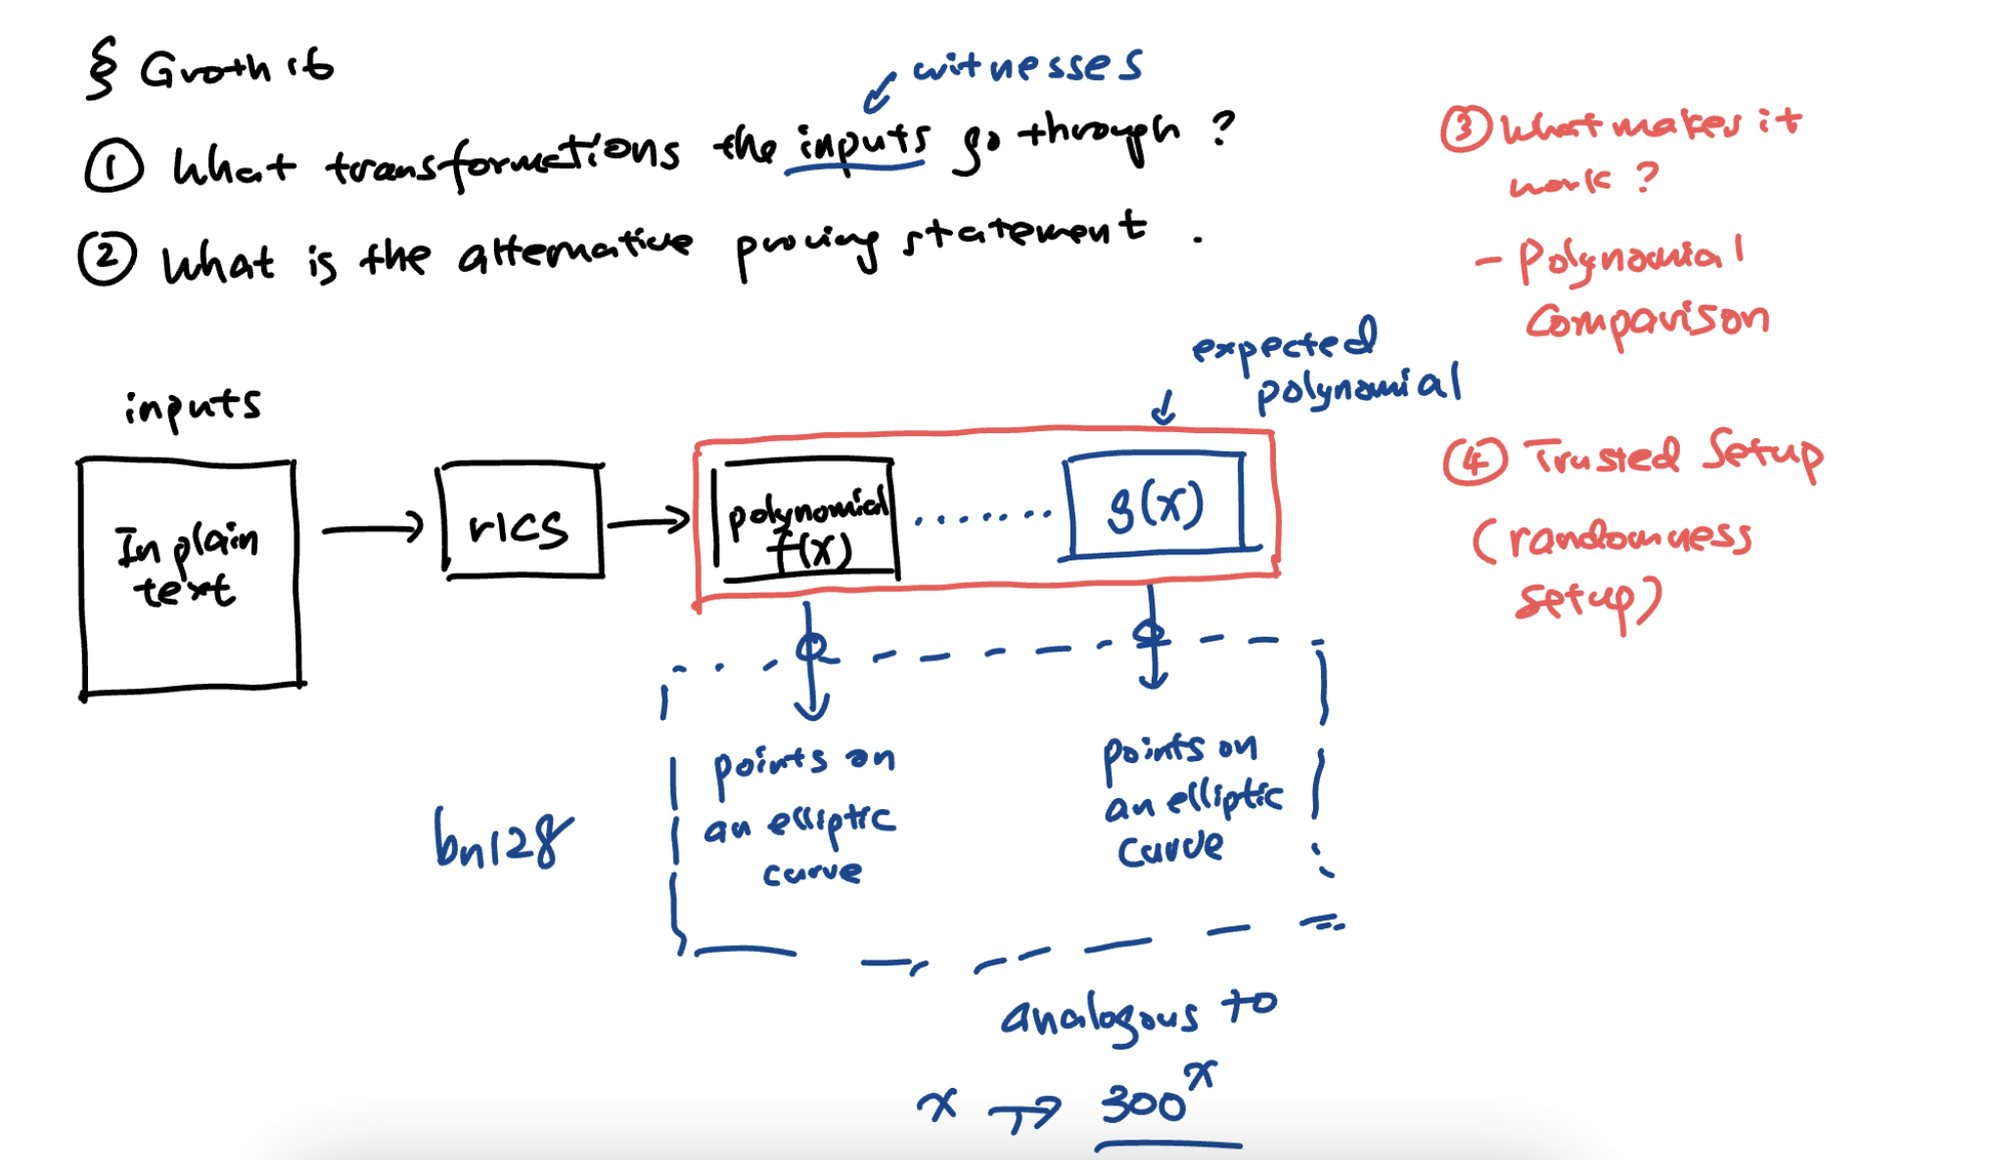 § Groth 16
witnesses
① What transformations the inputs go through ?
② What is the alternative proving statement .
③ What makes it
work ?
- Polynomial
Comparison
④ Trusted Setup
(randomness
setup)
expected
polynomial
inputs
In plain
text
r1CS
polynomial
f(x)
.......
g(x)
points on
an elliptic
curve
points on
an elliptic
curve
bn128
analogous to
x → 300^x